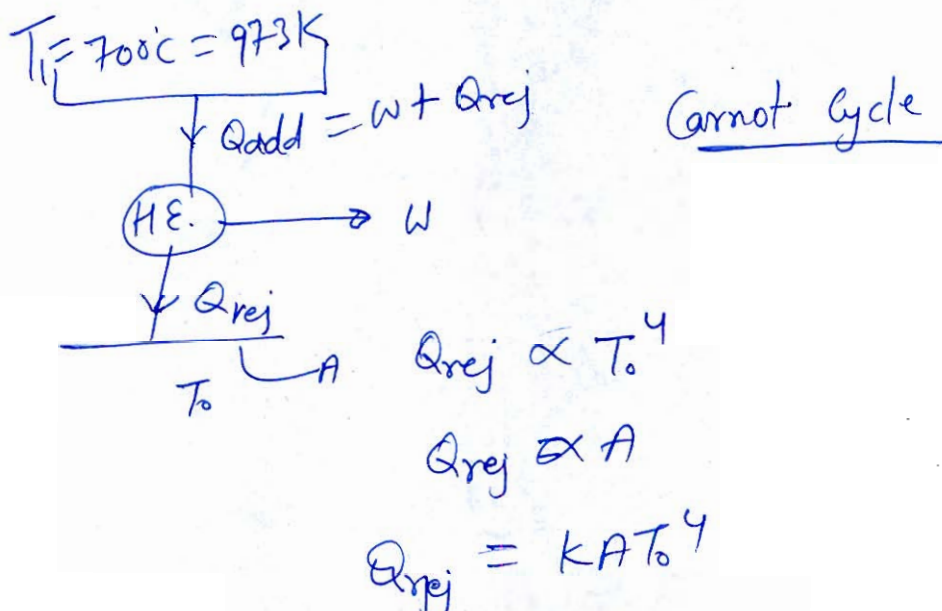 T₁ = 700°C = 973K
Qadd = W + Qrej
Carnot Cycle
H.E.
W
Qrej
T₀
A
Qrej ∝ T₀⁴
Qrej ∝ A
Qrej = KAT₀⁴